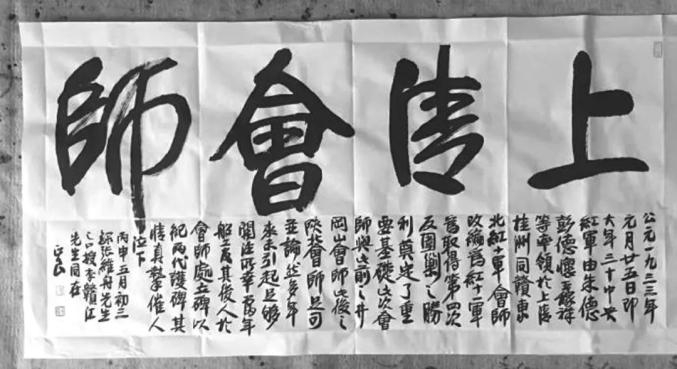 上清會師
公元一九三三年
元月廿五日即
大年三十中央
紅軍由朱德
彭德懷王稼祥
等率領於上清
桂洲同贛東
北紅十軍會師
改編爲紅十一軍
爲取得第四次
反圍剿之勝
利奠定了重
要基礎此次會
師與此前之井
岡山會師此後之
陝北會師足可
並論然多年
來未引起足够
關注所幸當年
船工及其後人於
會師處立碑以
紀兩代護碑其
情真摯催人
泣下
丙申五月初三
張維舟先生
李贛江
先生同在